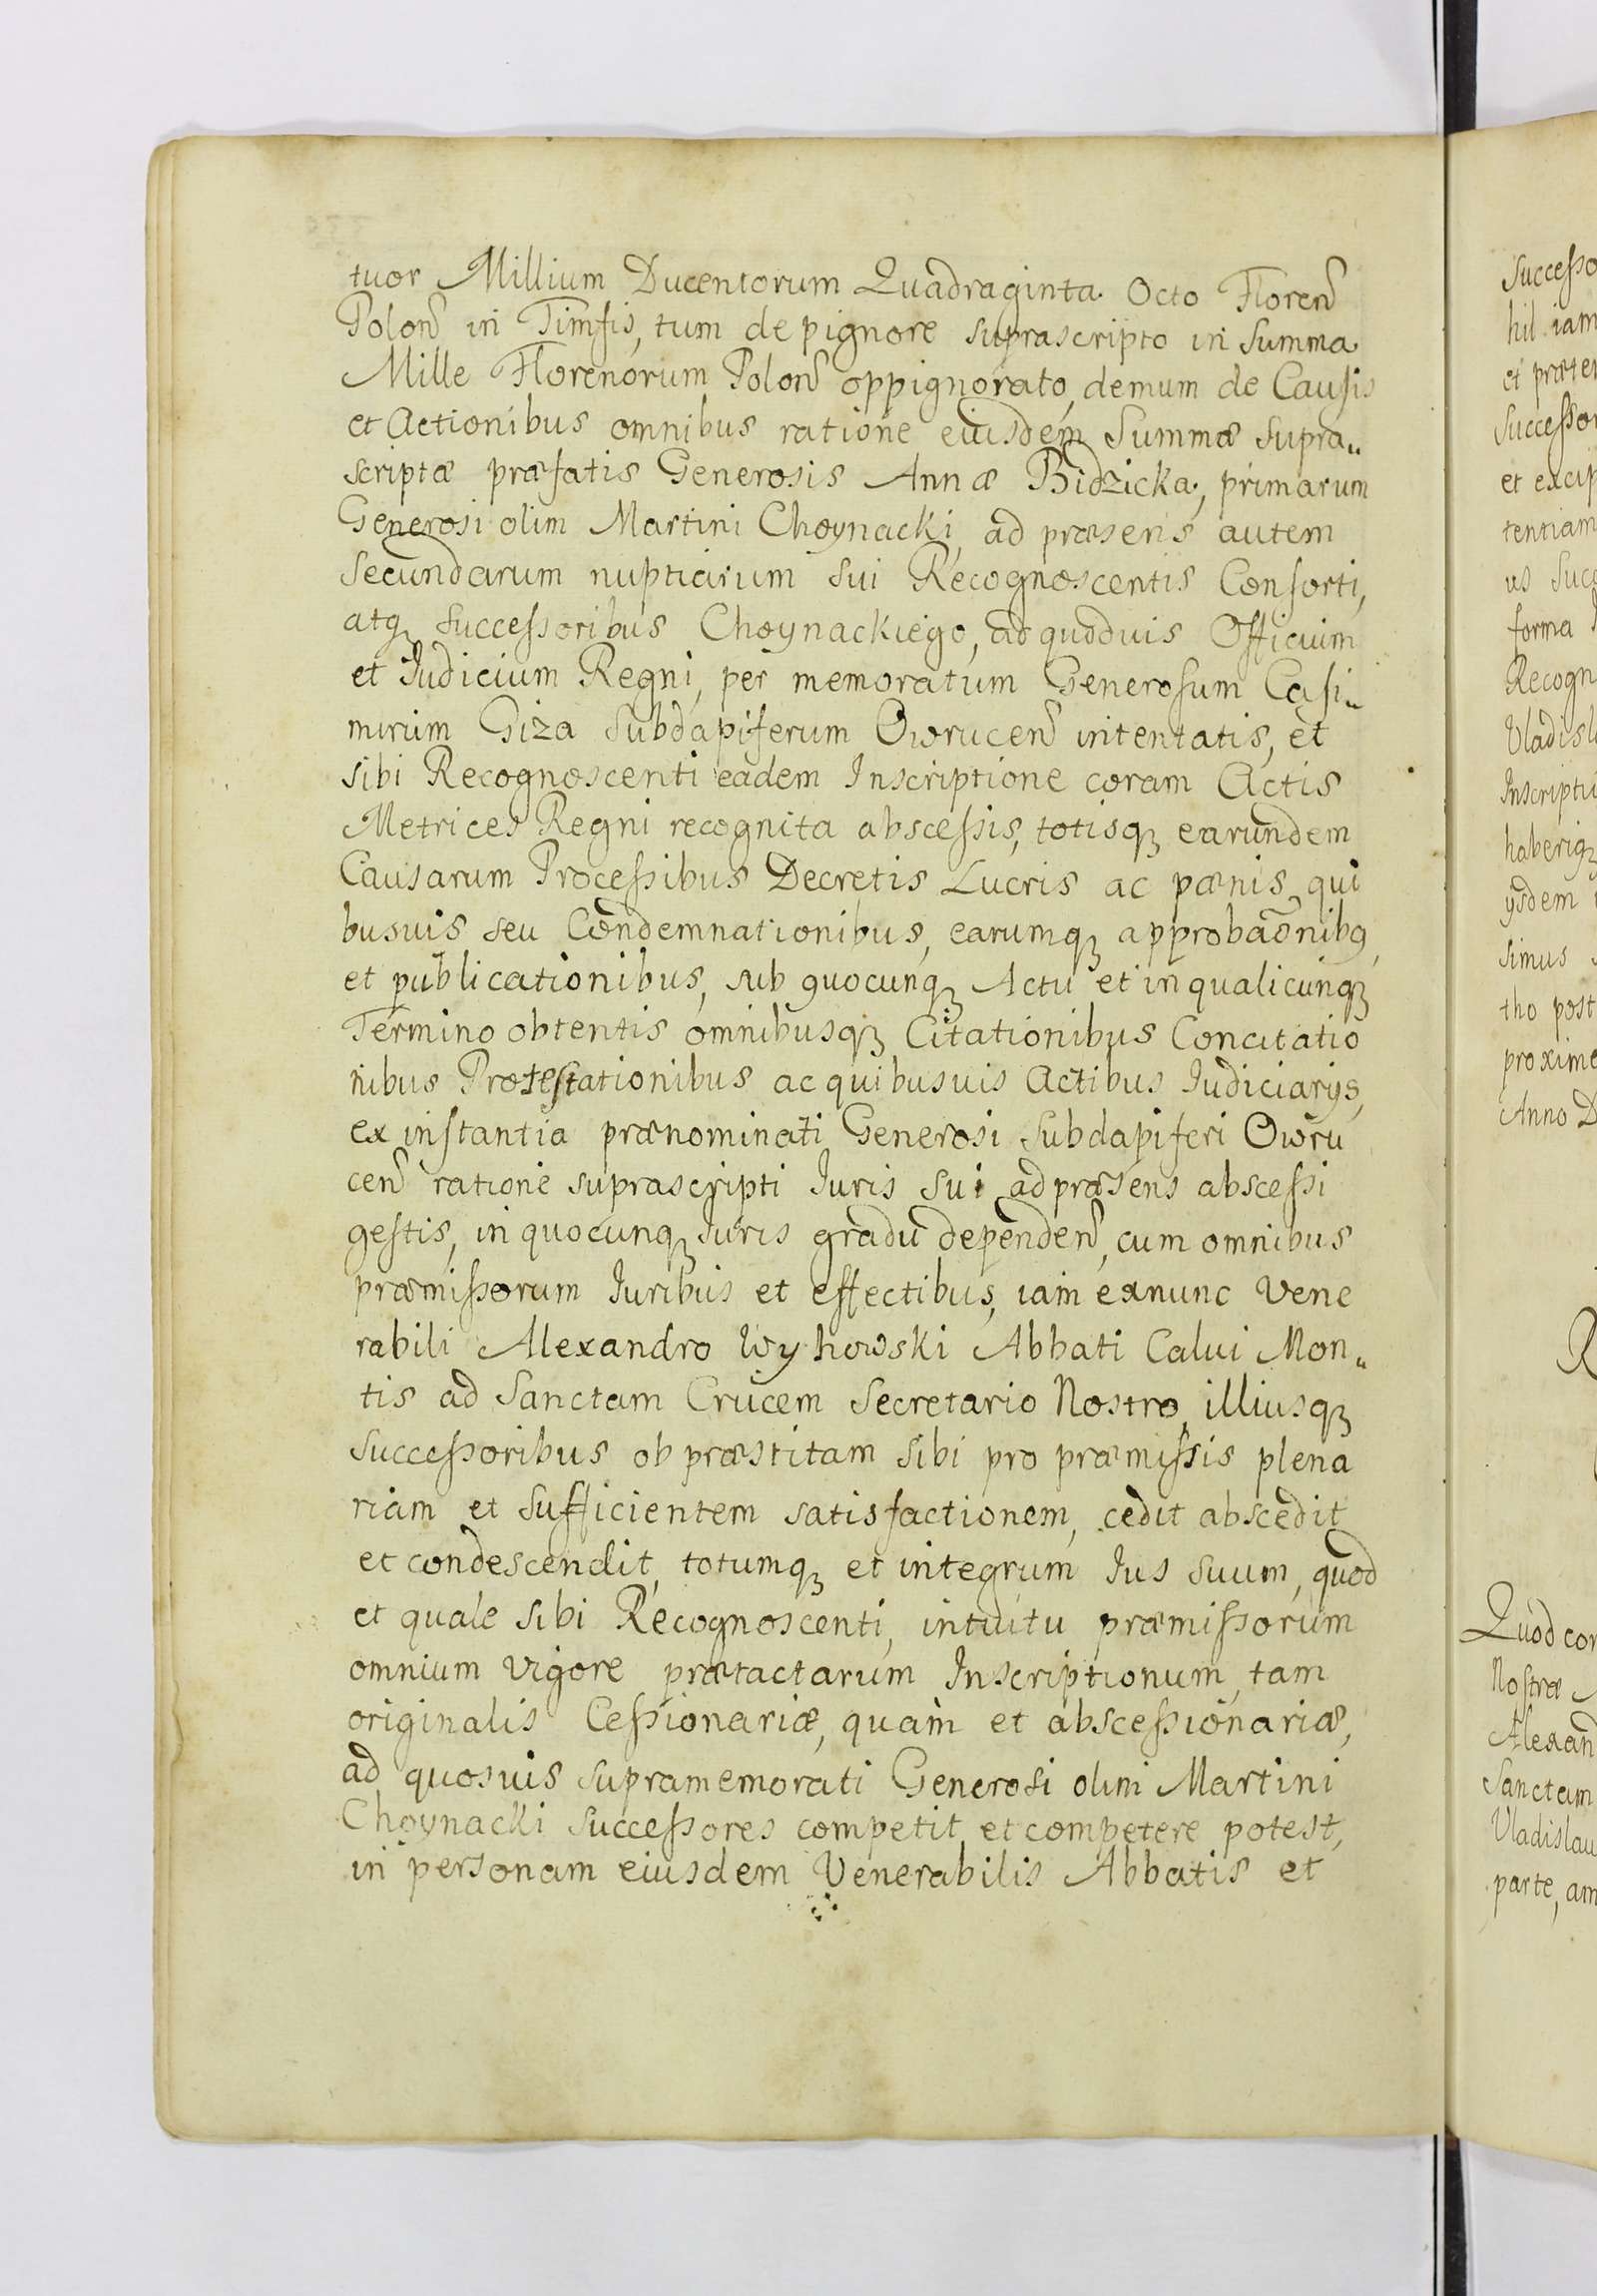 tuor Millium Ducentorum Quadraginta Octo Floren̄
Polon̄ in Timfis, tum de pignore suprascripto in summa
Mille Florenorum Polon̄ oppignorato, demum de Causis
et Actionibus omnibus ratione eiusdem Summæ supra„
scriptæ præfatis Generosis Annæ Bidzicka, primarum
Generosi olim Martini Choynacki, ad præsens autem
secundarum nuptiarum sui Recognoscentis Consorti,
atq successoribus Choynackiego, ad quoduis Officium
et Iudicium Regni, per memoratum Generosum Casi„
mirum Giza Subdapiferum Owrucen̄ intentatis, et
sibi Recognoscenti eadem Inscriptione coram Actis
Metrices Regni recognita abscessis, totisqꝫ earundem
Causarum Processibus Decretis Lucris ac pænis qui
busuis seu Condemnationibus, earumqꝫ approbaōnibꝯ
et publicationibus, sub quocunqꝫ Actu et in qualicunqꝫ
Termino obtentis omnibusqꝫ Citationibus Concitatio
nibus Protestationibus ac quibusuis Actibus Iudiciarys,
ex instantia prænominati Generosi Subdapiferi Owru
cen̄ ratione suprascripti Iuris sui ad præsens abscessi
gestis, in quocunqꝫ iuris gradu dependen̄, cum omnibus
præmissorum Iuribus et effectibus, iam exnunc Vene
rabili Alexandro Wyhowski Abbati Calui Mon„
tis ad Sanctam Crucem Secretario Nostro, illiusqꝫ
successoribus ob præstitam sibi pro præmissis plena
riam et sufficientem satisfactionem, cedit abscedit
et condescendit, totumqꝫ et integrum Ius suum, quod
et quale sibi Recognoscenti, intuitu præmissorum
omnium vigore prætactarum Inscriptionum, tam
originalis Cessionariæ, quam et abscessionariæ,
ad quosuis supramemorati Generosi olim Martini
Choynacki successores competit, et competere potest,
in personam eiusdem Venerabilis Abbatis et
Successo
hil iam
et præter
successor
et excip
tentiam
us succ
forma
Recogn
Vladisl
Inscripti
haberiqꝫ
ysdem
simus
tho post
proxime
Anno D
R
Quod cor
Nostræ
Alexand
Sanctam
Vladislau
parte, am